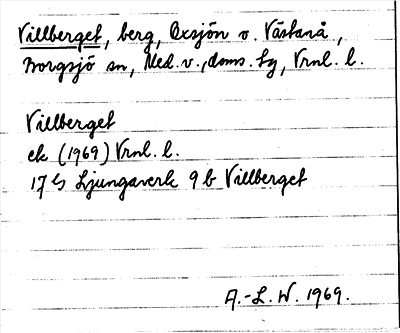 Villberget, berg, Oxsjön o. Västanå,
Borgsjö sn, Med. v., doms. tg, Vrnl. l.
Villberget
ek (1969) Vrnl. l.
17 G Ljungaverk 9 b Villberget
A.-L. W. 1969.